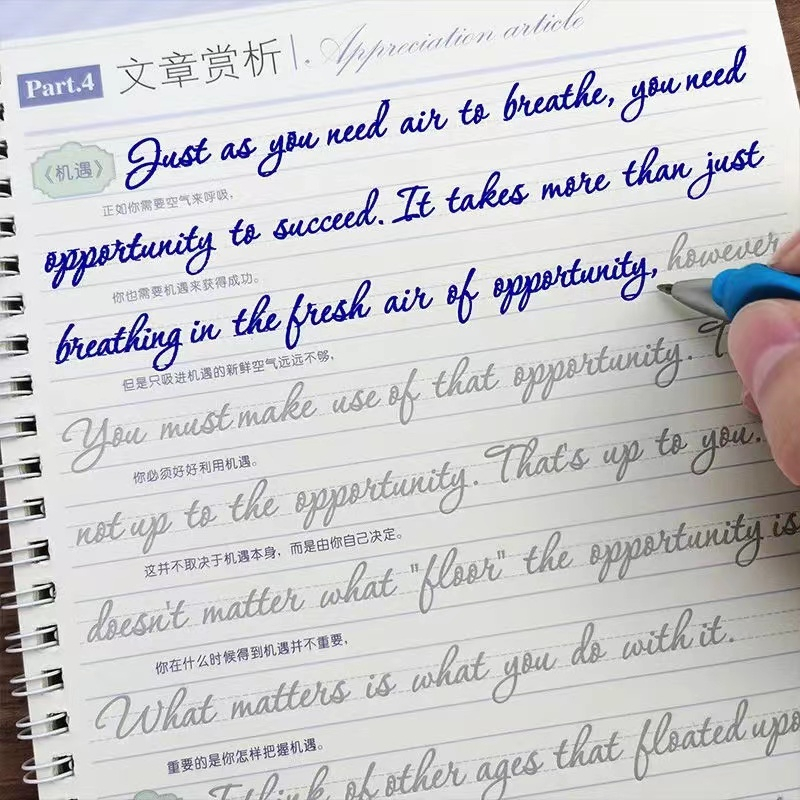 Part.4 文章赏析 Appreciation article
《机遇》 Just as you need air to breathe, you need
正如你需要空气来呼吸,
opportunity to succeed. It takes more than just
你也需要机遇来获得成功。
breathing in the fresh air of opportunity, however
但是只吸进机遇的新鲜空气远远不够,
You must make use of that opportunity. T
你必须好好利用机遇。
not up to the opportunity. That's up to you.
这并不取决于机遇本身，而是由你自己决定。
doesn't matter what "floor" the opportunity is
你在什么时候得到机遇并不重要,
What matters is what you do with it.
重要的是你怎样把握机遇。
I think of other ages that floated upo